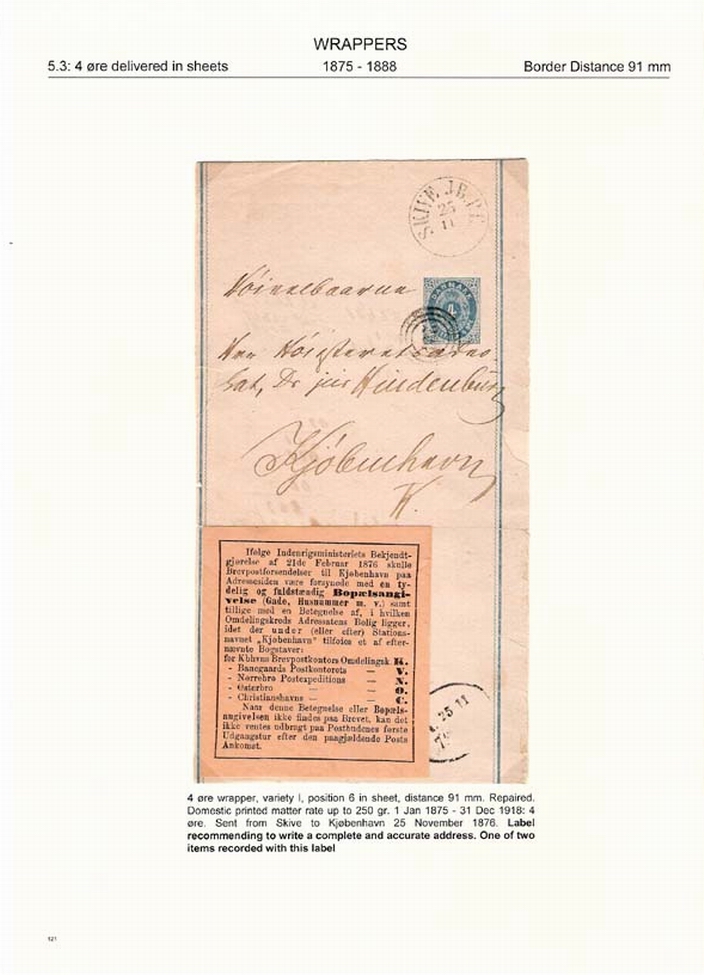 WRAPPERS
5.3: 4 øre delivered in sheets 1875 - 1888 Border Distance 91 mm
SKIVE J.B.P.E.
25
11
Høivelbaarne
DANMARK
4
Hrr Høiesteretsadvo-
kat, Dr jur Hindenburg
Kjöbenhavn
K.
Ifølge Indenrigsministeriets Bekjendt-
gjørelse af 21de Februar 1876 skulle
Brevpostforsendelser til Kjøbenhavn paa
Adressesiden være forsynede med en ty-
delig og fuldstændig Bopælsangi-
velse (Gade, Husnummer m. v.) samt
tillige med en Betegnelse af, i hvilken
Omdelingskreds Adressatens Bolig ligger,
idet der under (eller efter) Stations-
navnet „Kjøbenhavn" tilføies et af efter-
nævnte Bogstaver:
for Kbhvns Brevpostkontors Omdelingsk. K.
- Banegaards Postkontorets — V.
- Nørrebro Postexpeditions — N.
- Østerbro — — Ø.
- Christianshavns — — C.
Naar denne Betegnelse eller Bopæls-
angivelsen ikke findes paa Brevet, kan det
ikke ventes udbragt paa Postbudenes første
Udgangstur efter den paagjældende Posts
Ankomst.
25 11
4 øre wrapper, variety I, position 6 in sheet, distance 91 mm. Repaired.
Domestic printed matter rate up to 250 gr. 1 Jan 1875 - 31 Dec 1918: 4
øre. Sent from Skive to Kjøbenhavn 25 November 1876. Label
recommending to write a complete and accurate address. One of two
items recorded with this label
121